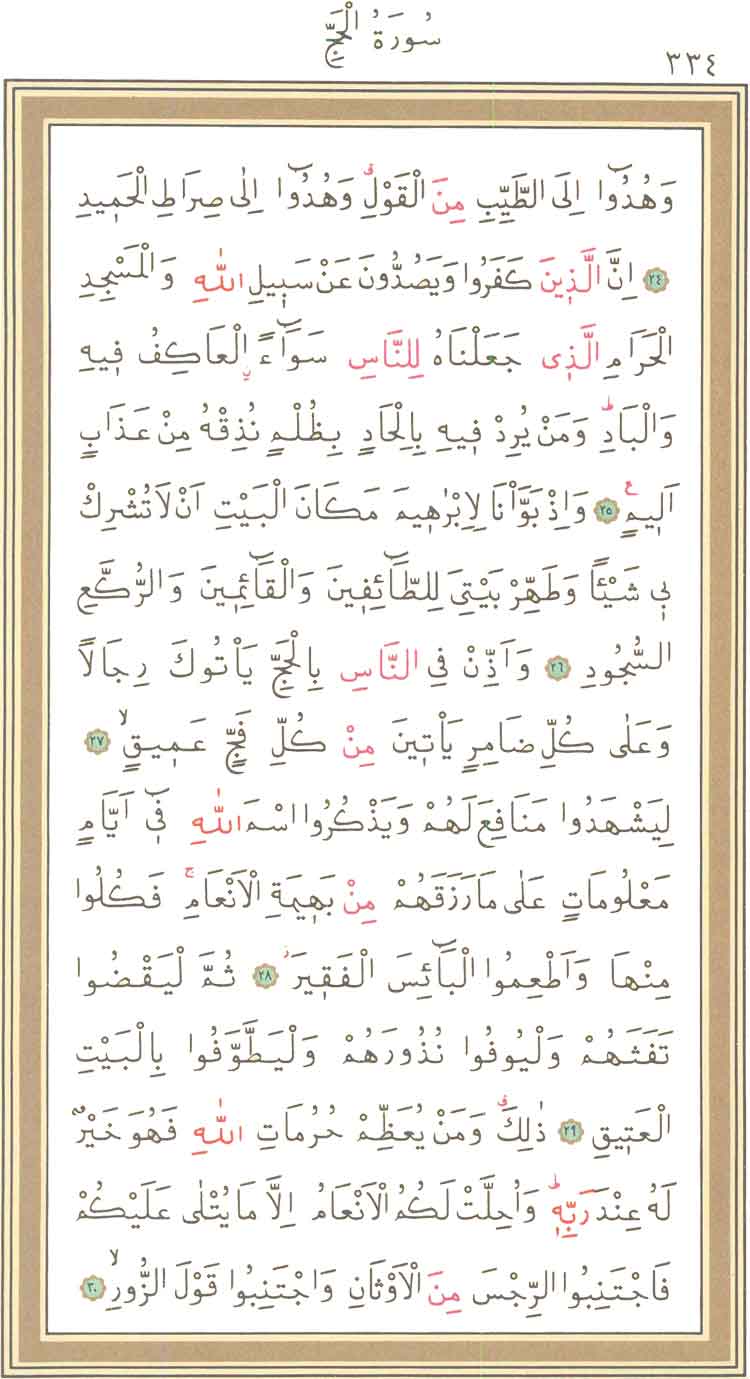 سُورَةُ الْحَجِّ
٣٣٤
وَهُدُٓوا اِلَى الطَّيِّبِ مِنَ الْقَوْلِۗ وَهُدُٓوا اِلٰى صِرَاطِ الْحَم۪يدِ
﴿٢٤﴾ اِنَّ الَّذ۪ينَ كَفَرُوا وَيَصُدُّونَ عَنْ سَب۪يلِ اللّٰهِ وَالْمَسْجِدِ
الْحَرَامِ الَّذ۪ى جَعَلْنَاهُ لِلنَّاسِ سَوَٓاءًۨ الْعَاكِفُ ف۪يهِ
وَالْبَادِۜ وَمَنْ يُرِدْ ف۪يهِ بِاِلْحَادٍ بِظُلْمٍ نُذِقْهُ مِنْ عَذَابٍ
اَل۪يمٍ۟ ﴿٢٥﴾ وَاِذْ بَوَّأْنَا لِاِبْرٰه۪يمَ مَكَانَ الْبَيْتِ اَنْ لَا تُشْرِكْ
ب۪ى شَيْـًٔا وَطَهِّرْ بَيْتِىَ لِلطَّٓائِف۪ينَ وَالْقَٓائِم۪ينَ وَالرُّكَّعِ
السُّجُودِ ﴿٢٦﴾ وَاَذِّنْ فِى النَّاسِ بِالْحَجِّ يَأْتُوكَ رِجَالًا
وَعَلٰى كُلِّ ضَامِرٍ يَأْت۪ينَ مِنْ كُلِّ فَجٍّ عَم۪يقٍۙ ﴿٢٧﴾
لِيَشْهَدُوا مَنَافِعَ لَهُمْ وَيَذْكُرُوا اسْمَ اللّٰهِ ف۪ٓى اَيَّامٍ
مَعْلُومَاتٍ عَلٰى مَا رَزَقَهُمْ مِنْ بَه۪يمَةِ الْاَنْعَامِۚ فَكُلُوا
مِنْهَا وَاَطْعِمُوا الْبَٓائِسَ الْفَق۪يرَۘ ﴿٢٨﴾ ثُمَّ لْيَقْضُوا
تَفَثَهُمْ وَلْيُوفُوا نُذُورَهُمْ وَلْيَطَّوَّفُوا بِالْبَيْتِ
الْعَت۪يقِ ﴿٢٩﴾ ذٰلِكَۗ وَمَنْ يُعَظِّمْ حُرُمَاتِ اللّٰهِ فَهُوَ خَيْرٌ
لَهُ عِنْدَ رَبِّه۪ۜ وَاُحِلَّتْ لَكُمُ الْاَنْعَامُ اِلَّا مَا يُتْلٰى عَلَيْكُمْ
فَاجْتَنِبُوا الرِّجْسَ مِنَ الْاَوْثَانِ وَاجْتَنِبُوا قَوْلَ الزُّورِۙ ﴿٣٠﴾